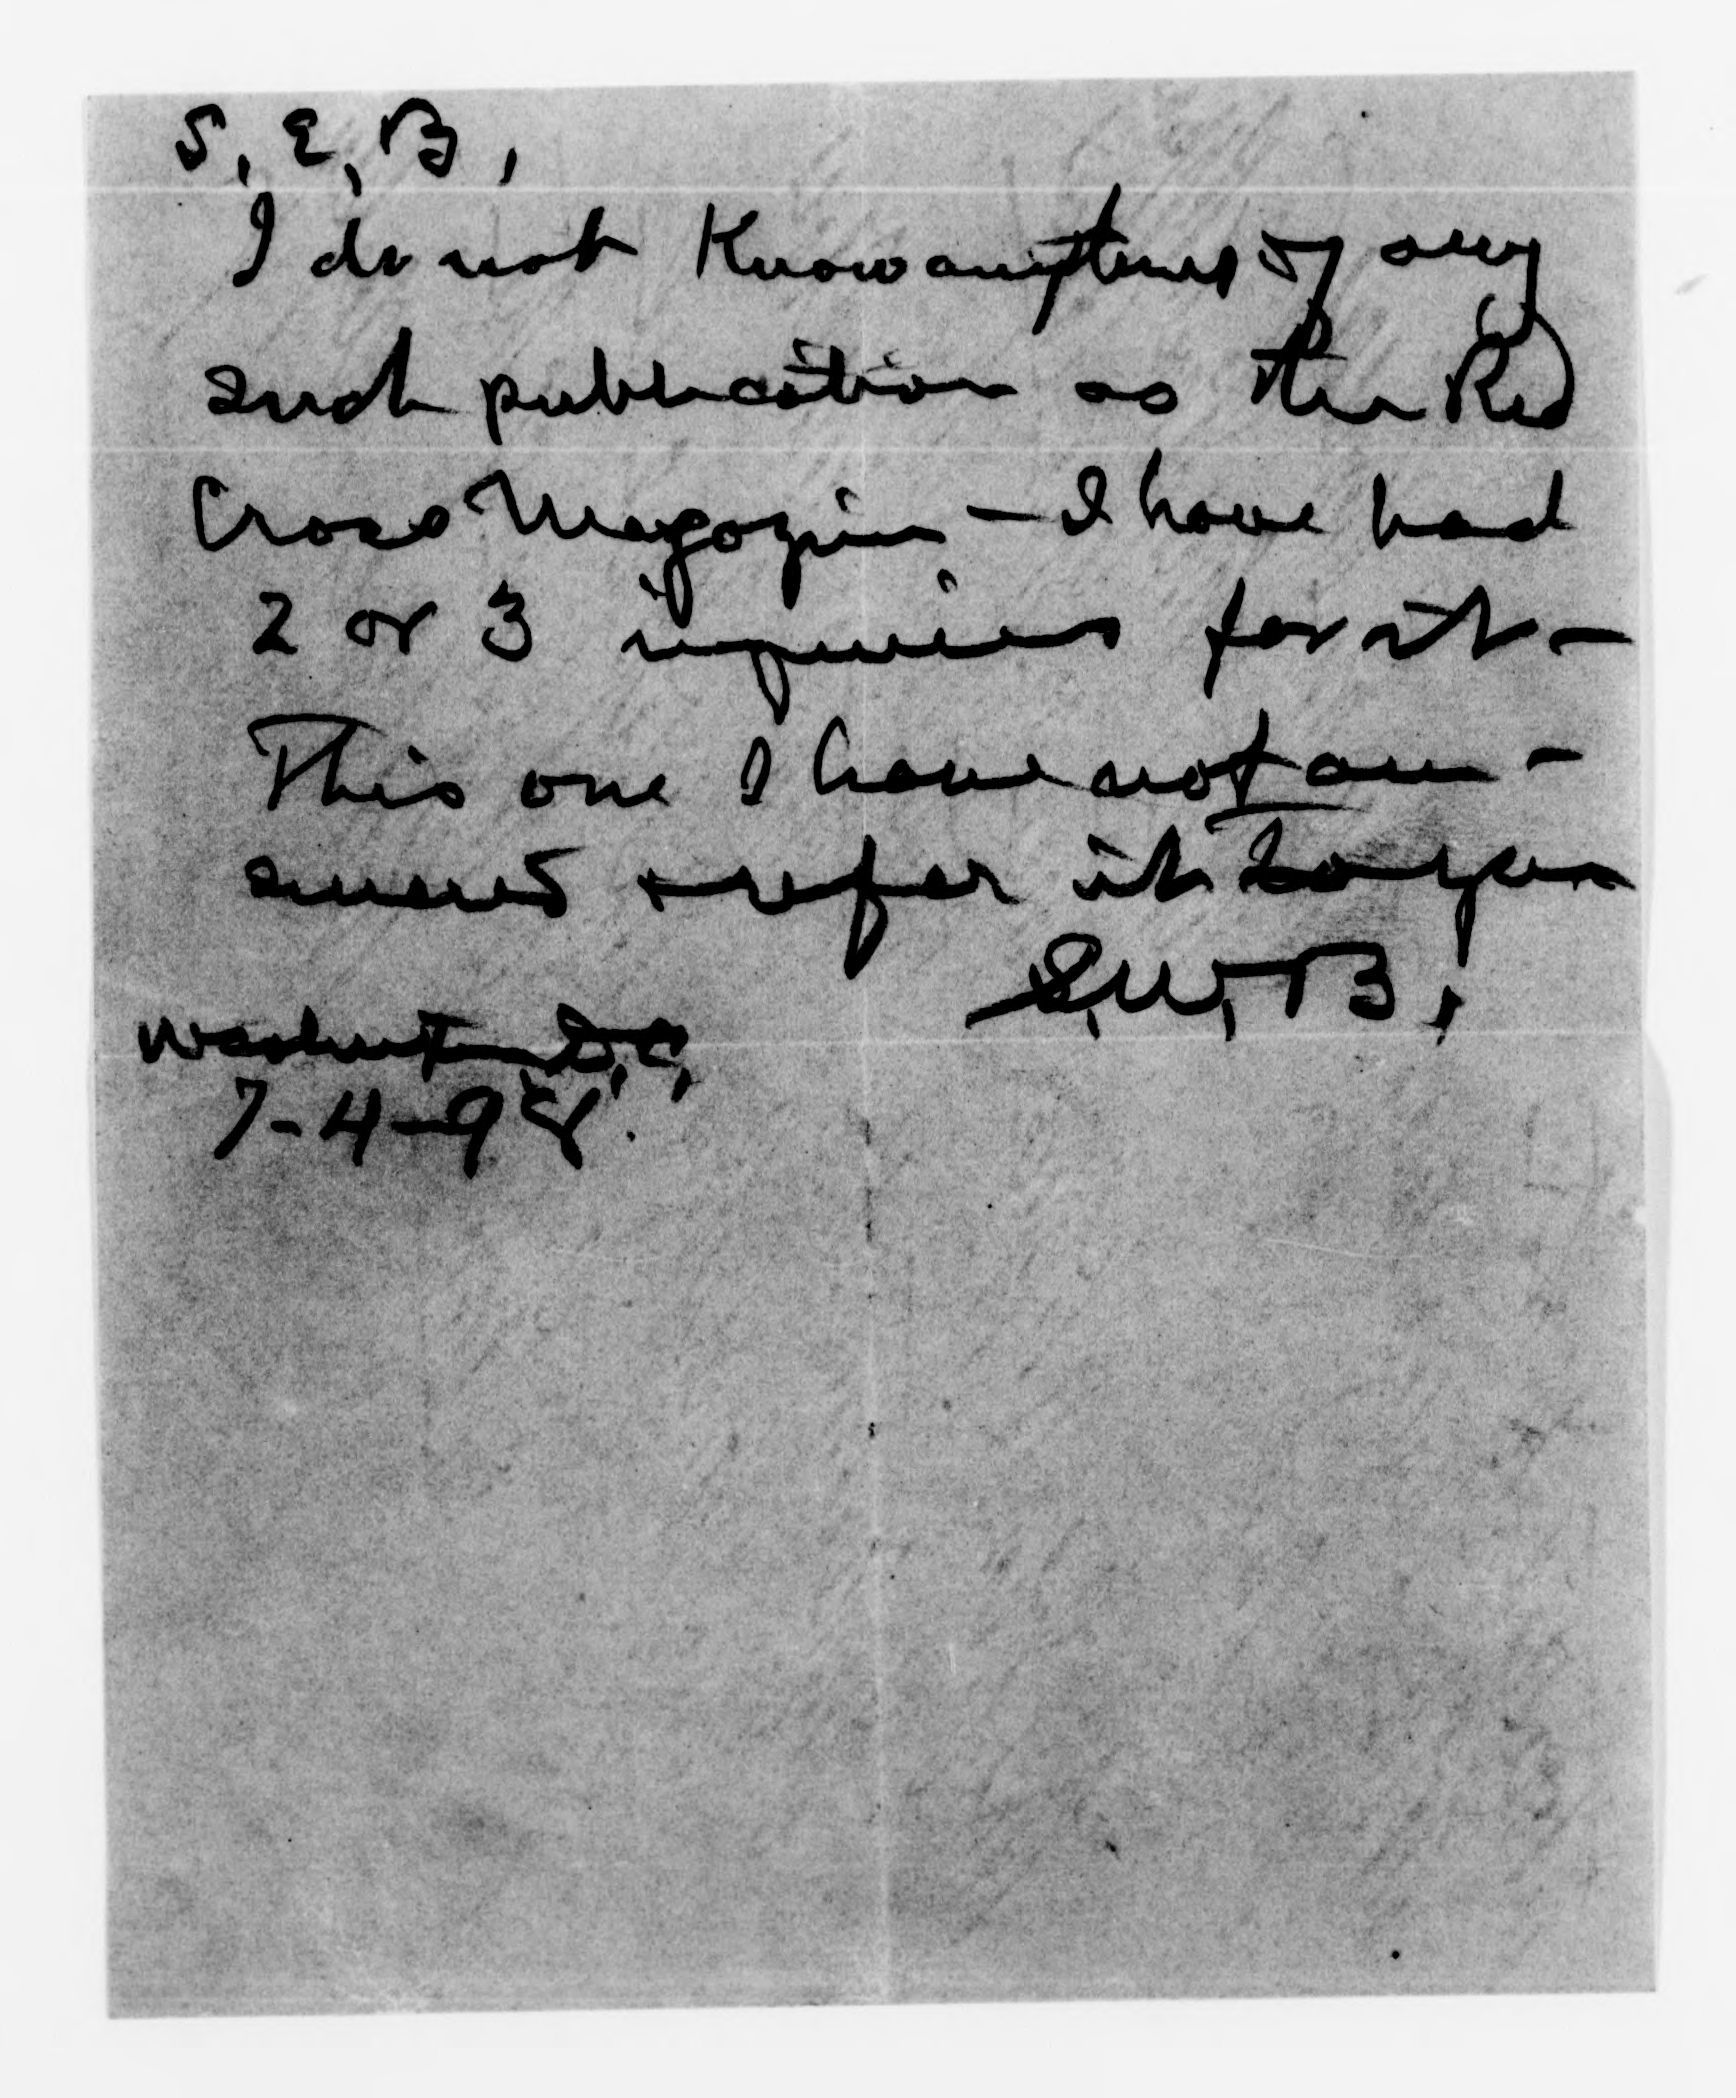 S. E. B.,
I do not know anything of any
such publication as the Red
Cross Magazine — I have had
2 or 3 inquiries for it —
This one I have not an-
swered & refer it to you
S. W. B.
Washington, D.C.,
7-4-98.